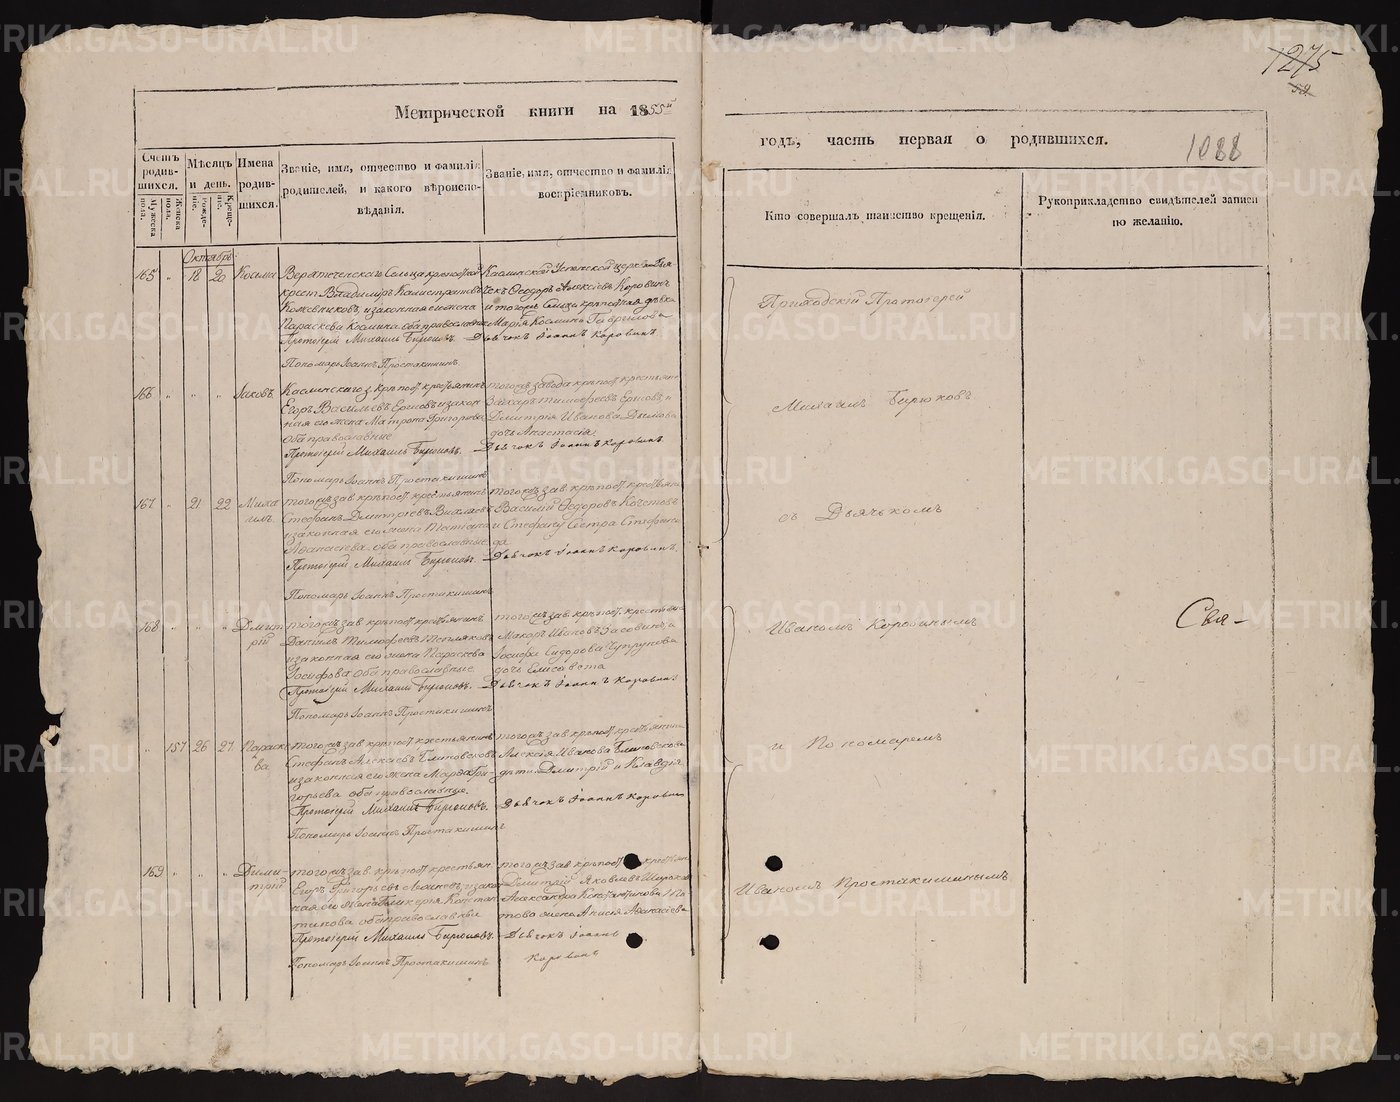 1275
52
Метрической книги на 1855й
годъ, часть первая о родившихся.
1088
Счетъ родив-шихся.
Мужеска пола.
Женска пола.
Мѣсяцъ и день.
Рожде-нія.
Креще-нія.
Имена родив-шихся.
Званіе, имя, отчество и фамилія родителей, и какого вѣроиспо-вѣданія.
Званіе, имя, отчество и фамилія воспріемниковъ.
Кто совершалъ таинство крещенія.
Рукоприкладство свидѣтелей записи по желанію.
Октябрь
165 „ 18 20 Косьма
крест Владиміръ Калистратовъ
Кожевниковъ, и законная его жена
Параскева Космина, оба православные
Протоіерей Михаилъ Бирюковъ.
Пономарь Іоаннъ Простакишинъ
Каслинской Успенской церкви Дья
чекъ Ѳеодоръ Алексѣевъ Коровинъ
Марія Космина Гаврилова
Дьячокъ Іоаннъ Коровинъ
166 „ „ „ Іаковъ
Каслинскаго з. крѣпост крестьянинъ
Егоръ Васильевъ Ерловъ и закон
ная его жена Матрона Григорьева
оба православные
Протоіерей Михаилъ Бирюковъ.
Пономарь Іоаннъ Простакишинъ
тогожъ завода крѣпост крестьян
Захаръ Тимофеевъ
Димитрія Иванова
дочь Анастасія
Дьячокъ Іоаннъ Коровинъ
167 „ 21 22 Миха
илъ
тогожъ зав крѣпост крестьянинъ
Стефанъ Димитріевъ
и законная его жена Татіана
Аѳанасьева оба православные
Протоіерей Михаилъ Бирюковъ.
Пономарь Іоаннъ Простакишинъ
тогожъ зав крѣпост крестьян
Василій Ѳедоровъ
и Стефану сестра Стефани
да
Дьячокъ Іоаннъ Коровинъ
168 „ „ „ Димит
рій
тогожъ зав крѣпост крестьянинъ
Даніилъ Тимофеевъ Тепляковъ
и законная его жена Параскева
Іосифова оба православные
Протоіерей Михаилъ Бирюковъ.
Пономарь Іоаннъ Простакишинъ
тогожъ зав. крѣпост. крестьян
Макаръ Ивановъ
Іосифа Сидорова Чупрунова
дочь Елисавета
Дьячокъ Іоаннъ Коровинъ
„ 157 26 27 Параске
ва
тогожъ зав крѣпост крестьянинъ
Стефанъ Алексѣевъ Блиновсковъ
и законная его жена Марѳа Гри
горьева оба православные
Протоіерей Михаилъ Бирюковъ.
Пономарь Іоаннъ Простакишинъ
тогожъ зав крѣпост крестьянина
Алексія Иванова Блиновскова
дѣти Димитрій и Клавдія
Дьячокъ Іоаннъ Коровинъ
169 „ „ „ Дими-
трій
тогожъ зав. крѣпост крестьян
Егоръ Григорьевъ и закон
ная его жена Гликерія Констан
тинова оба православны
Протоіерей Михаилъ Бирюковъ.
Пономарь Іоаннъ Простакишинъ
тогожъ зав крѣпост крестьян
Димитрій Яковлевъ
Александра Константинова
това жена Анисія Аѳанасіева
Дьячокъ Іоаннъ
Коровинъ
Приходскій Протоіерей
Михаилъ Бирюковъ
съ Дьячькомъ
Иваномъ Коровинымъ
и Пономаремъ
Иваномъ Простакишинымъ
Свя-
METRIKI.GASO-URAL.RU